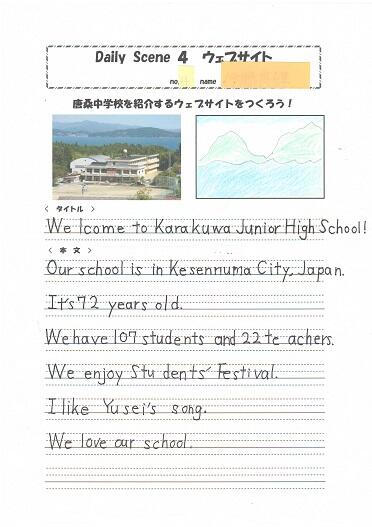 Daily Scene 4 ウェブサイト
no. name
唐桑中学校を紹介するウェブサイトをつくろう！
< タイトル >
Welcome to Karakuwa Junior High School!
< 本文 >
Our school is in Kesennuma City, Japan.
It's 72 years old.
We have 107 students and 22 teachers.
We enjoy Students' Festival.
I like Yusei's song.
We love our school.